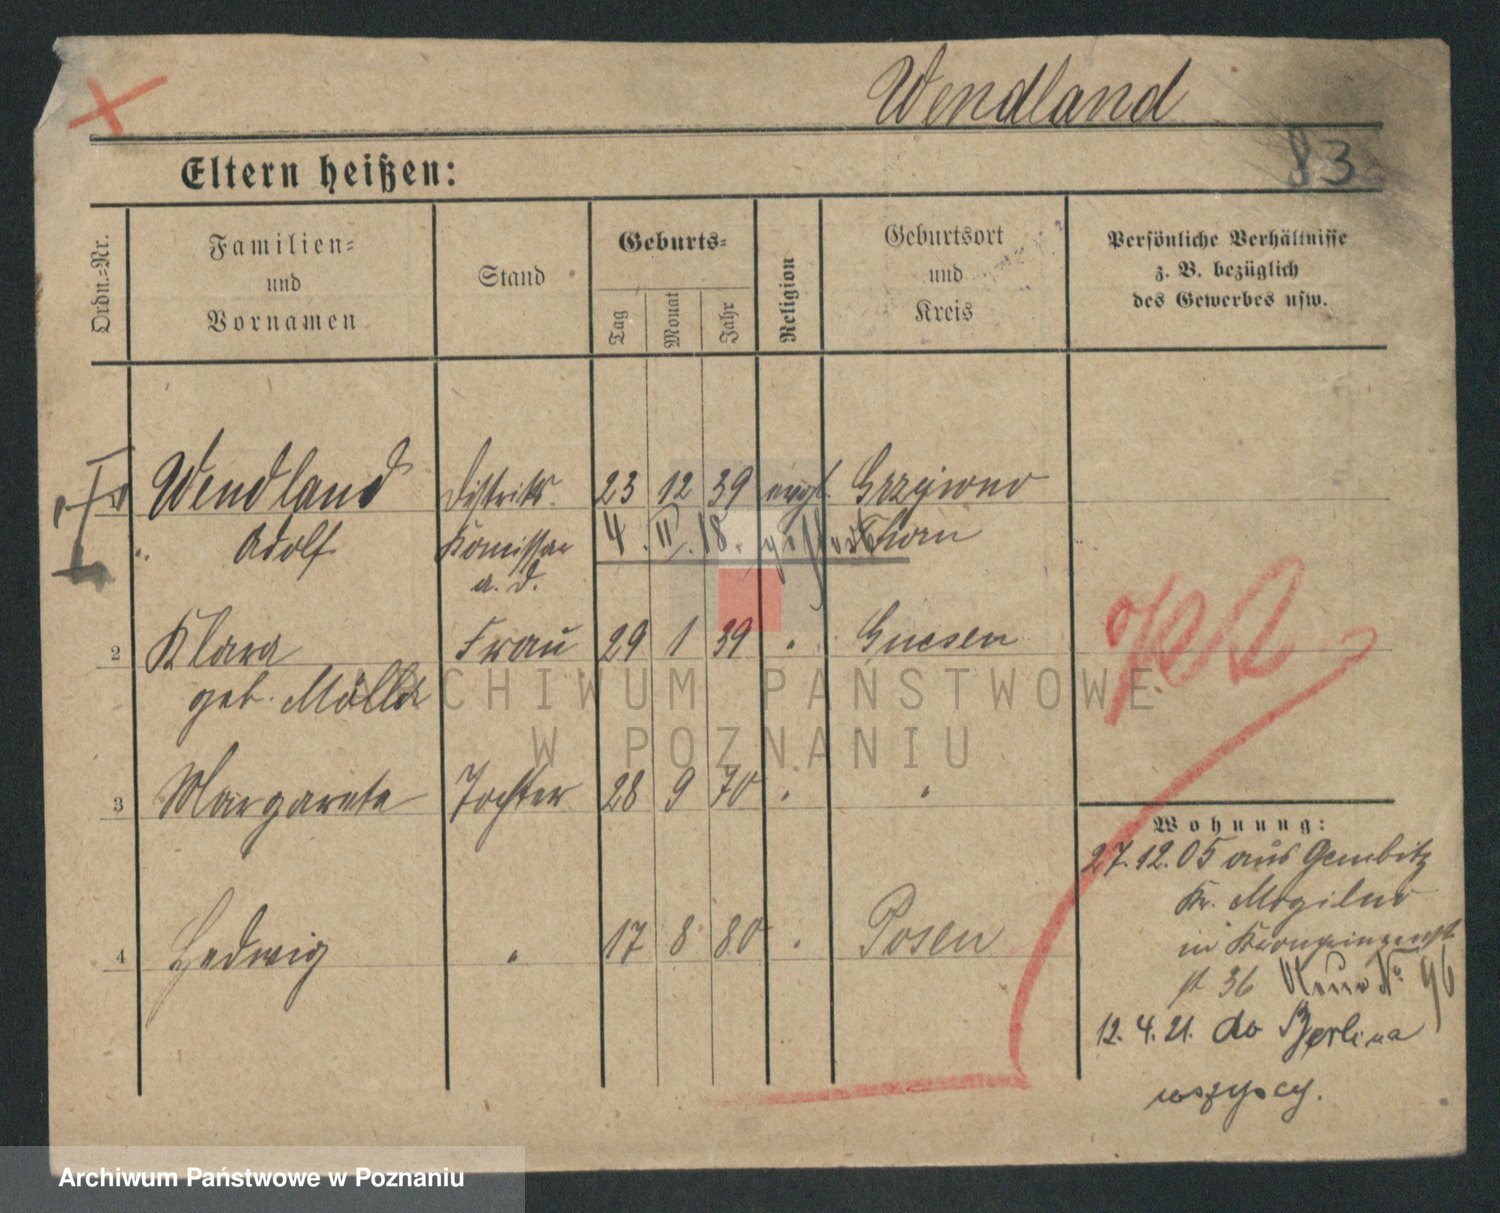 Wendland
83
Eltern heißen:
Ordn.-Nr.
Familien-
und
Vornamen
Stand
Geburts-
Tag
Monat
Jahr
Religion
Geburtsort
und
Kreis
Persönliche Verhältnisse
z. B. bezüglich
des Gewerbes usw.
Wendland Distrikts- 23 12 39 evgl. Grzywno
Adolf Komissar 4. II. 18. Thorn
a. D.
2 Klara Frau 29 1 39 " Gnesen
geb.
3 Margarete Tochter 28 9 70 " "
4 Hedwig " 17 8 80 " Posen
Wohnung:
27.12.05 aus Gembitz
Kr. Mogilno
in
36 Neue No 96
12.4.21. do Berlina
wszyscy.
ARCHIWUM PAŃSTWOWE
W POZNANIU
Archiwum Państwowe w Poznaniu